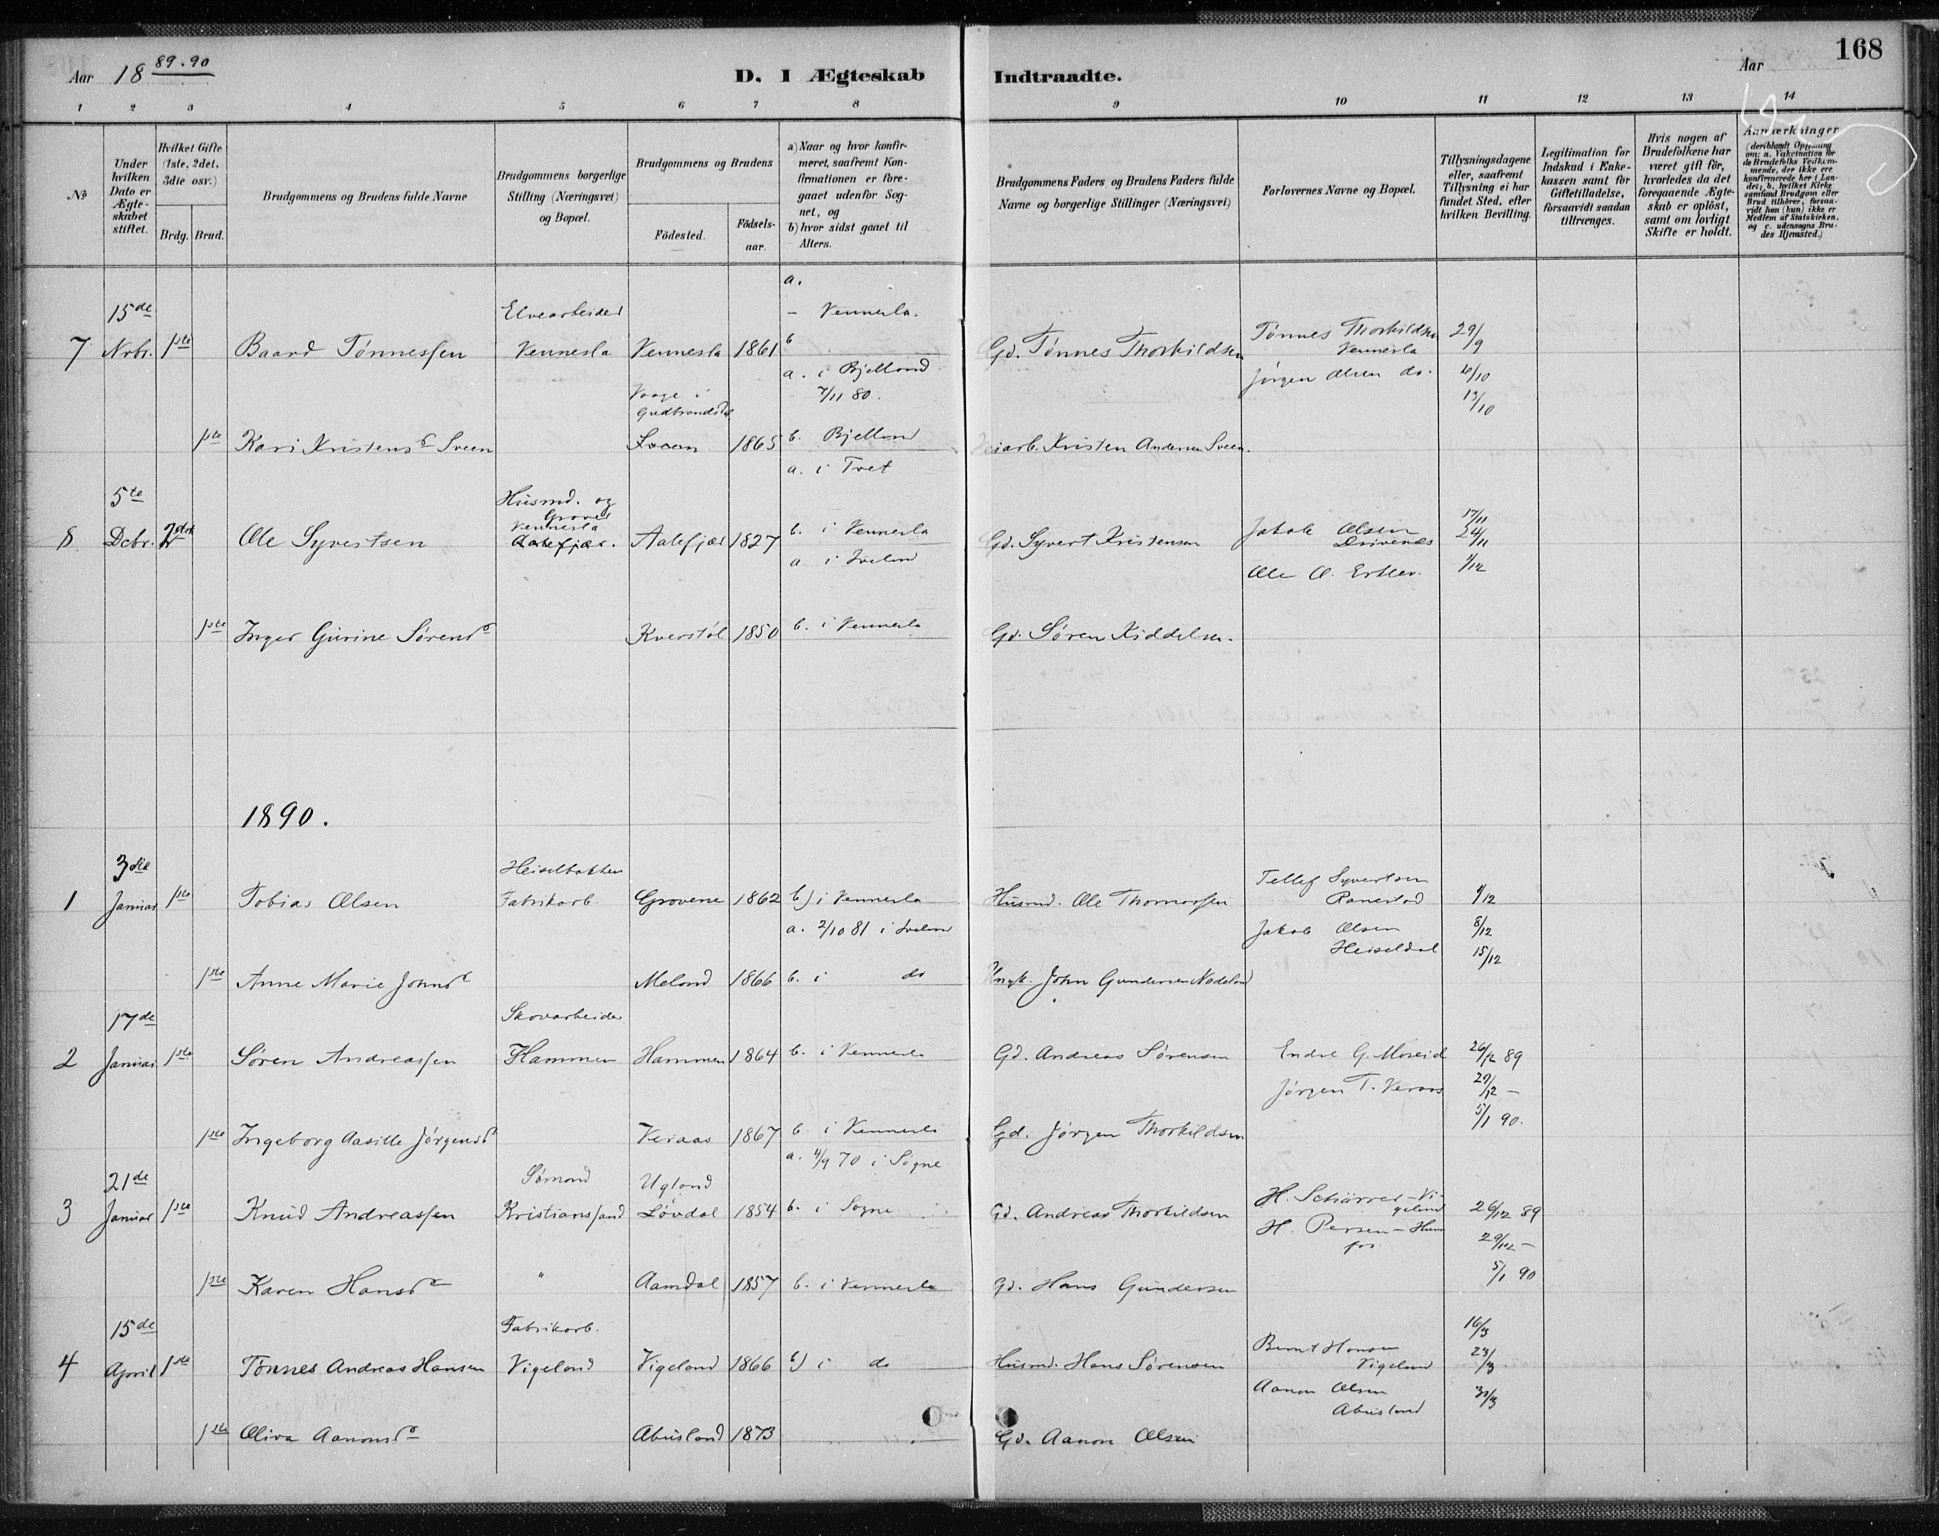 168
Aar 18 89.90
D. I Ægteskab Indtraadte.
Aar
1 2 3 4 5 6 7 8 9 10 11 12 13 14
No
Under hvilken Dato er Ægteskabet stiftet.
Hvilket Gifte (1ste, 2det, 3die osv.)
Brdg. Brud.
Brudgommens og Brudens fulde Navne
Brudgommens borgerlige Stilling (Næringsvei) og Bopæl.
Brudgommens og Brudens
Fødested.
Fødselsaar.
a) Naar og hvor konfirmeret, saafremt Konfirmationen er foregaaet udenfor Sognet, og
b) hvor sidst gaaet til Alters.
Brudgommens Faders og Brudens Faders fulde Navne og borgerlige Stillinger (Næringsvei)
Forlovernes Navne og Bopæl.
Tillysningsdagene eller, saafremt Tillysning ei har fundet Sted, efter hvilken Bevilling.
Legitimation for Indskud i Enkekassen samt for Giftetilladelse, forsaavidt saadan tiltrænges.
Hvis nogen af Brudefolkene har været gift før, hvorledes da det foregaaende Ægteskab er opløst, samt om lovligt Skifte er holdt.
Anmærkninger (deriblandt Oplysning om: a. Vakcination for de Brudefolks Vedkommende, der ikke ere konfirmerede her i Landet; b. hvilket Kirkesamfund Brudgom eller Brud tilhører, forsaavidt han (hun) ikke er Medlem af Statskirken, og c. udensogns Brudes Hjemsted.)
a.
15de Elvearbeider – Vennesla.
7 Nvbr. 1ste Baard Tønnessen Vennesla Vennesla 1861 b Gd. Tønnes Thorkildsen Tønnes Thorkildsen Vennesla 29/9
a. i Bjelland 7/11 80. Jørgen Olsen do. 6/10
Vaage i Gudbrandsdal 13/10
1ste Kari Kristensd Sveen 1865 b. Bjelland Kristen Andersen Sveen.
a. i Tvet
5te Husmd. og
Vennesla 17/11
8 Dcbr. 2det Ole Syvertsen Aalefjær. Aalefjær 1827 b. i Vennesla Gd. Syvert Kristensen Jakob Olsen Drivenes 24/11
a. i Iveland Ole O. 1/12
1ste Inger Gurine Sørensd Kverstøl 1850 b. i Vennesla Gd. Søren Kiddelsen.
1890.
3die
1 Januar 1ste Tobias Olsen Fabrikarb Grovene 1862 b) i Vennesla Husmd. Ole Thomassen Tellef Syvertsen Ranestad 1/12
a. 2/10 81 i Iveland Jakob Olsen Heiseldal 8/12
15/12
1ste Anne Marie Johnsd Meland 1866 b. i do John Gundersen Nodeland
17de Skovarbeider
2 Januar 1ste Søren Andreassen Hammen Hammen 1864 b. i Vennesla Gd. Andreas Sørensen Endre G. Moseid 26/12 89
Jørgen T. Veraas 29/12 –
5/1 90.
1ste Ingeborg Aasille Jørgensd Veraas 1867 b. i Vennesla Gd. Jørgen Thorkildsen
a. 4/9 70 i Søgne
21de Sømand Ugland
3 Januar 1ste Knud Andreassen Kristianssand Løvdal 1854 b. i Søgne Gd. Andreas Thorkildsen H. Schärrer – Vigeland 26/12 89
H. Persen – Hunsfos 29/12 –
5/1 90
1ste Karen Hansd " Aamdal 1857 b. i Vennesla Gd. Hans Gundersen
15de Fabrikarb. 16/3
4 April 1ste Tønnes Andreas Hansen Vigeland Vigeland 1866 b) i do Husmd. Hans Sørensen Bernt Hansen Vigeland 23/3
Aanon Olsen Abusland 30/3
1ste Oliva Aanonsd Abusland 1873 Gd. Aanon Olsen